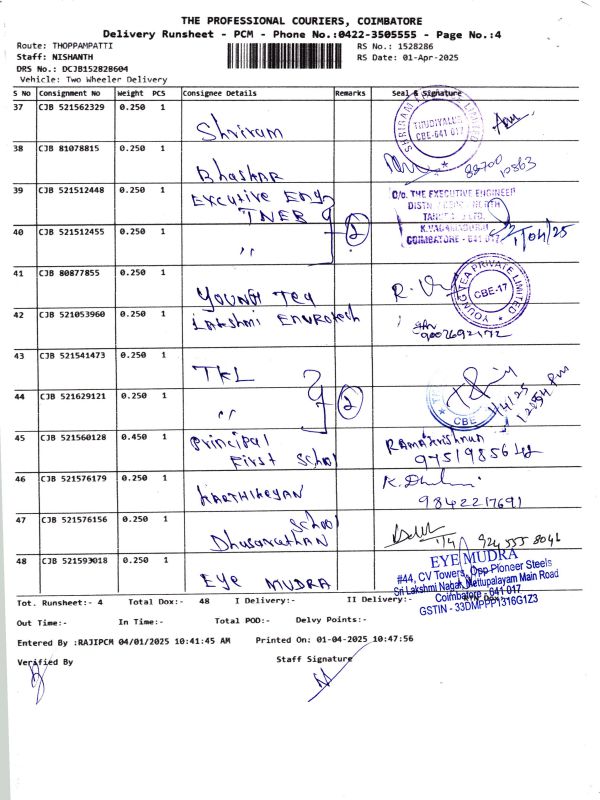 THE PROFESSIONAL COURIERS, COIMBATORE
Delivery Runsheet - PCM - Phone No.:0422-3505555 - Page No.:4
Route: THOPPAMPATTI
RS No.: 1528286
Staff: NISHANTH
RS Date: 01-Apr-2025
DRS No.: DCJB152828604
Vehicle: Two Wheeler Delivery
S No Consignment No Weight PCS Consignee Details Remarks Seal & Signature
37 CJB 521562329 0.250 1 Shriram
THUDIYALUR
CBE-641 017
38 CJB 81078815 0.250 1 Bhaskar
39 CJB 521512448 0.250 1 Executive Engg
TNEB 9
O/o. THE EXECUTIVE ENGINEER
40 CJB 521512455 0.250 1 〃 2
COIMBATORE - 641 017
41 CJB 80877855 0.250 1 Young Tea
YOUNG TEA PRIVATE LIMITED
CBE-17
42 CJB 521053960 0.250 1 Lakshmi
43 CJB 521541473 0.250 1 TKL
44 CJB 521629121 0.250 1 〃 2
CBE
45 CJB 521560128 0.450 1 Principal
First School
Ramakrishnan
46 CJB 521576179 0.250 1 Karthikeyan
9842217691
47 CJB 521576156 0.250 1 School
1/4 924 555 8046
48 CJB 521593018 0.250 1 Eye MUDRA
EYE MUDRA
#44, CV Towers, Opp Pioneer Steels
Sri Lakshmi Nagar, Mettupalayam Main Road
Coimbatore - 641 017
GSTIN - 33DMPPP1316G1Z3
Tot. Runsheet:- 4 Total Dox:- 48 I Delivery:- II Delivery:-
Out Time:- In Time:- Total POD:- Delvy Points:-
Entered By :RAJIPCM 04/01/2025 10:41:45 AM Printed On: 01-04-2025 10:47:56
Verified By Staff Signature